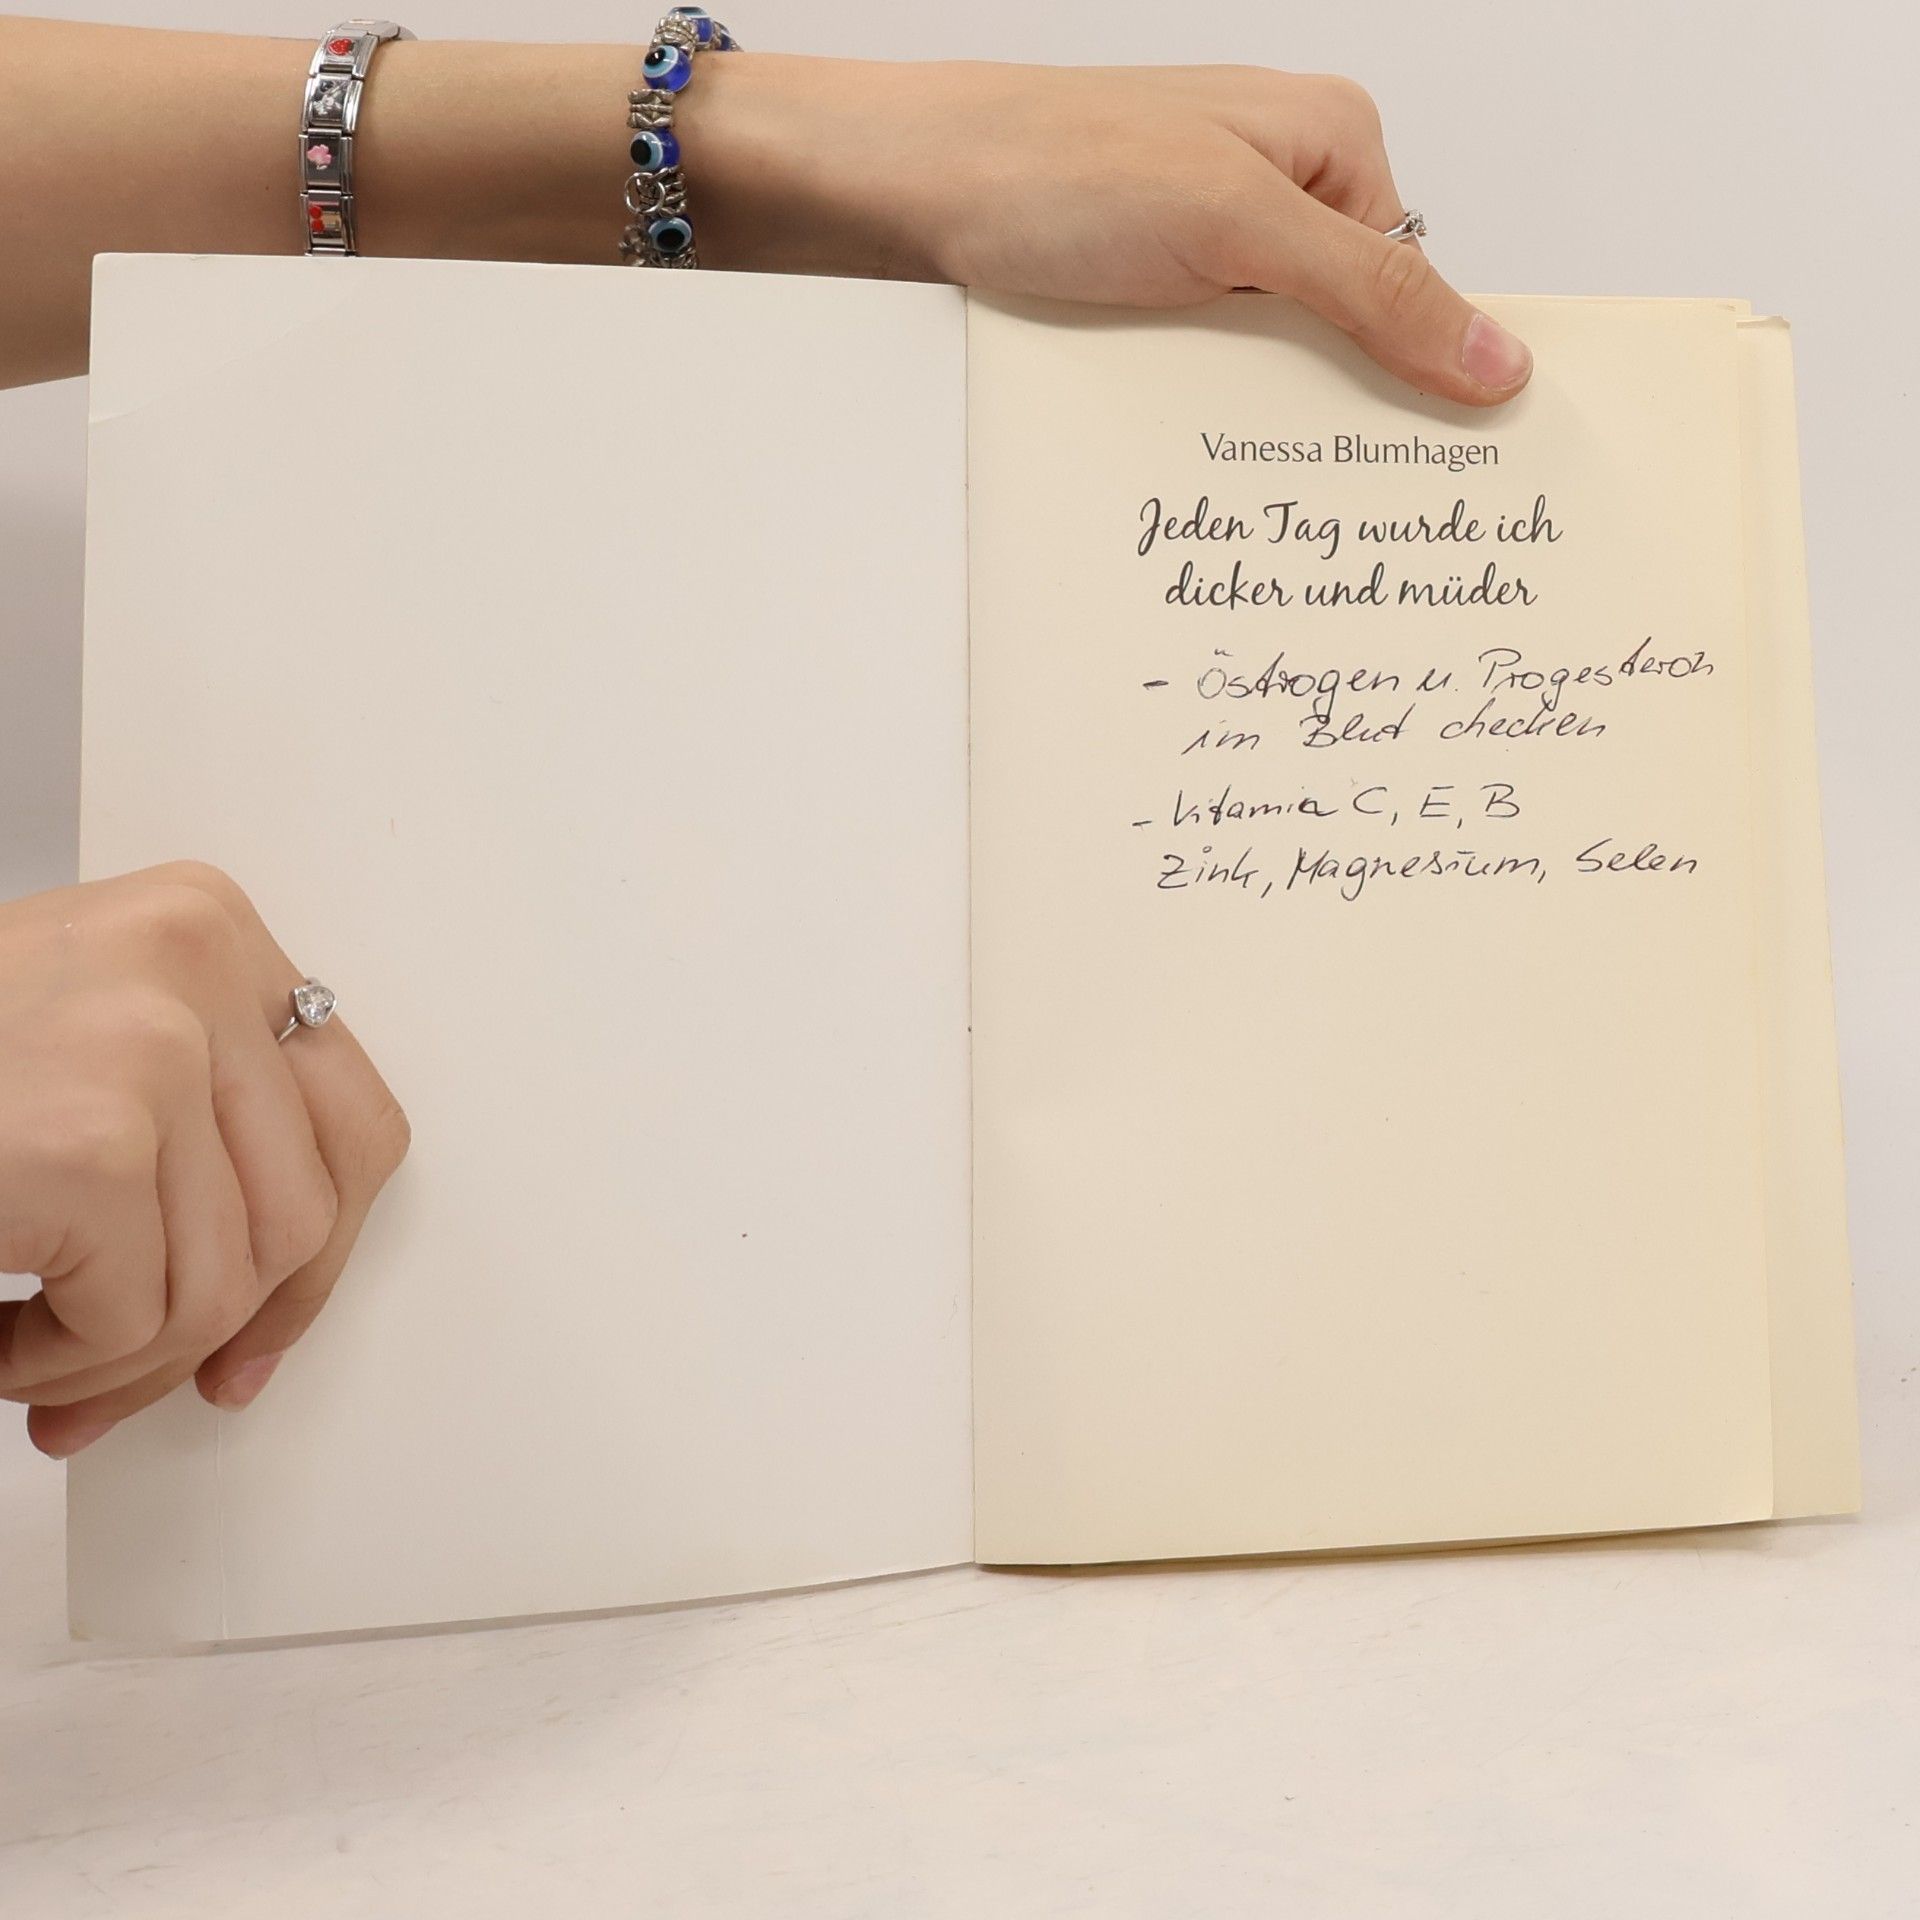 Vanessa Blumhagen
Jeden Tag wurde ich
dicker und müder
- Östrogen u. Progesteron
im Blut checken
- Vitamin C, E, B
Zink, Magnesium, Selen